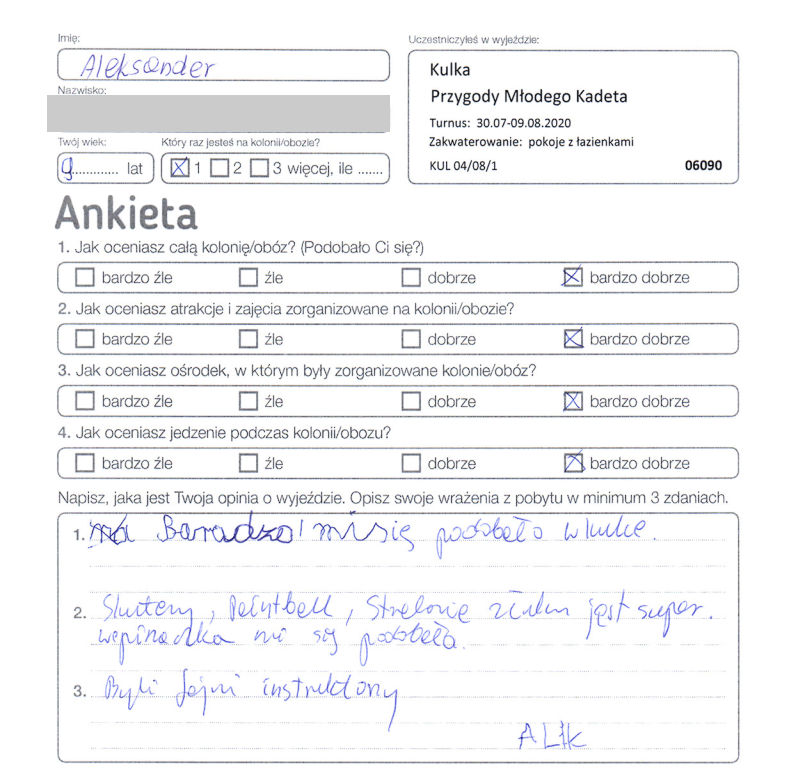 Imię:
Aleksander
Uczestniczyłeś w wyjeździe:
Kulka
Przygody Młodego Kadeta
Turnus: 30.07-09.08.2020
Zakwaterowanie: pokoje z łazienkami
KUL 04/08/1 06090
Nazwisko:
Twój wiek: Który raz jesteś na kolonii/obozie?
9 ............ lat 1 2 3 więcej, ile .......
Ankieta
1. Jak oceniasz całą kolonię/obóz? (Podobało Ci się?)
bardzo źle źle dobrze bardzo dobrze
2. Jak oceniasz atrakcje i zajęcia zorganizowane na kolonii/obozie?
bardzo źle źle dobrze bardzo dobrze
3. Jak oceniasz ośrodek, w którym były zorganizowane kolonie/obóz?
bardzo źle źle dobrze bardzo dobrze
4. Jak oceniasz jedzenie podczas kolonii/obozu?
bardzo źle źle dobrze bardzo dobrze
Napisz, jaka jest Twoja opinia o wyjeździe. Opisz swoje wrażenia z pobytu w minimum 3 zdaniach.
1. Baradzo mi się podobało w kulce.
2. Skutery, Peintbell, Strelanie jest super.
wspinaczka mi się podobała.
3. Byli fajni instruktorzy
ALIK